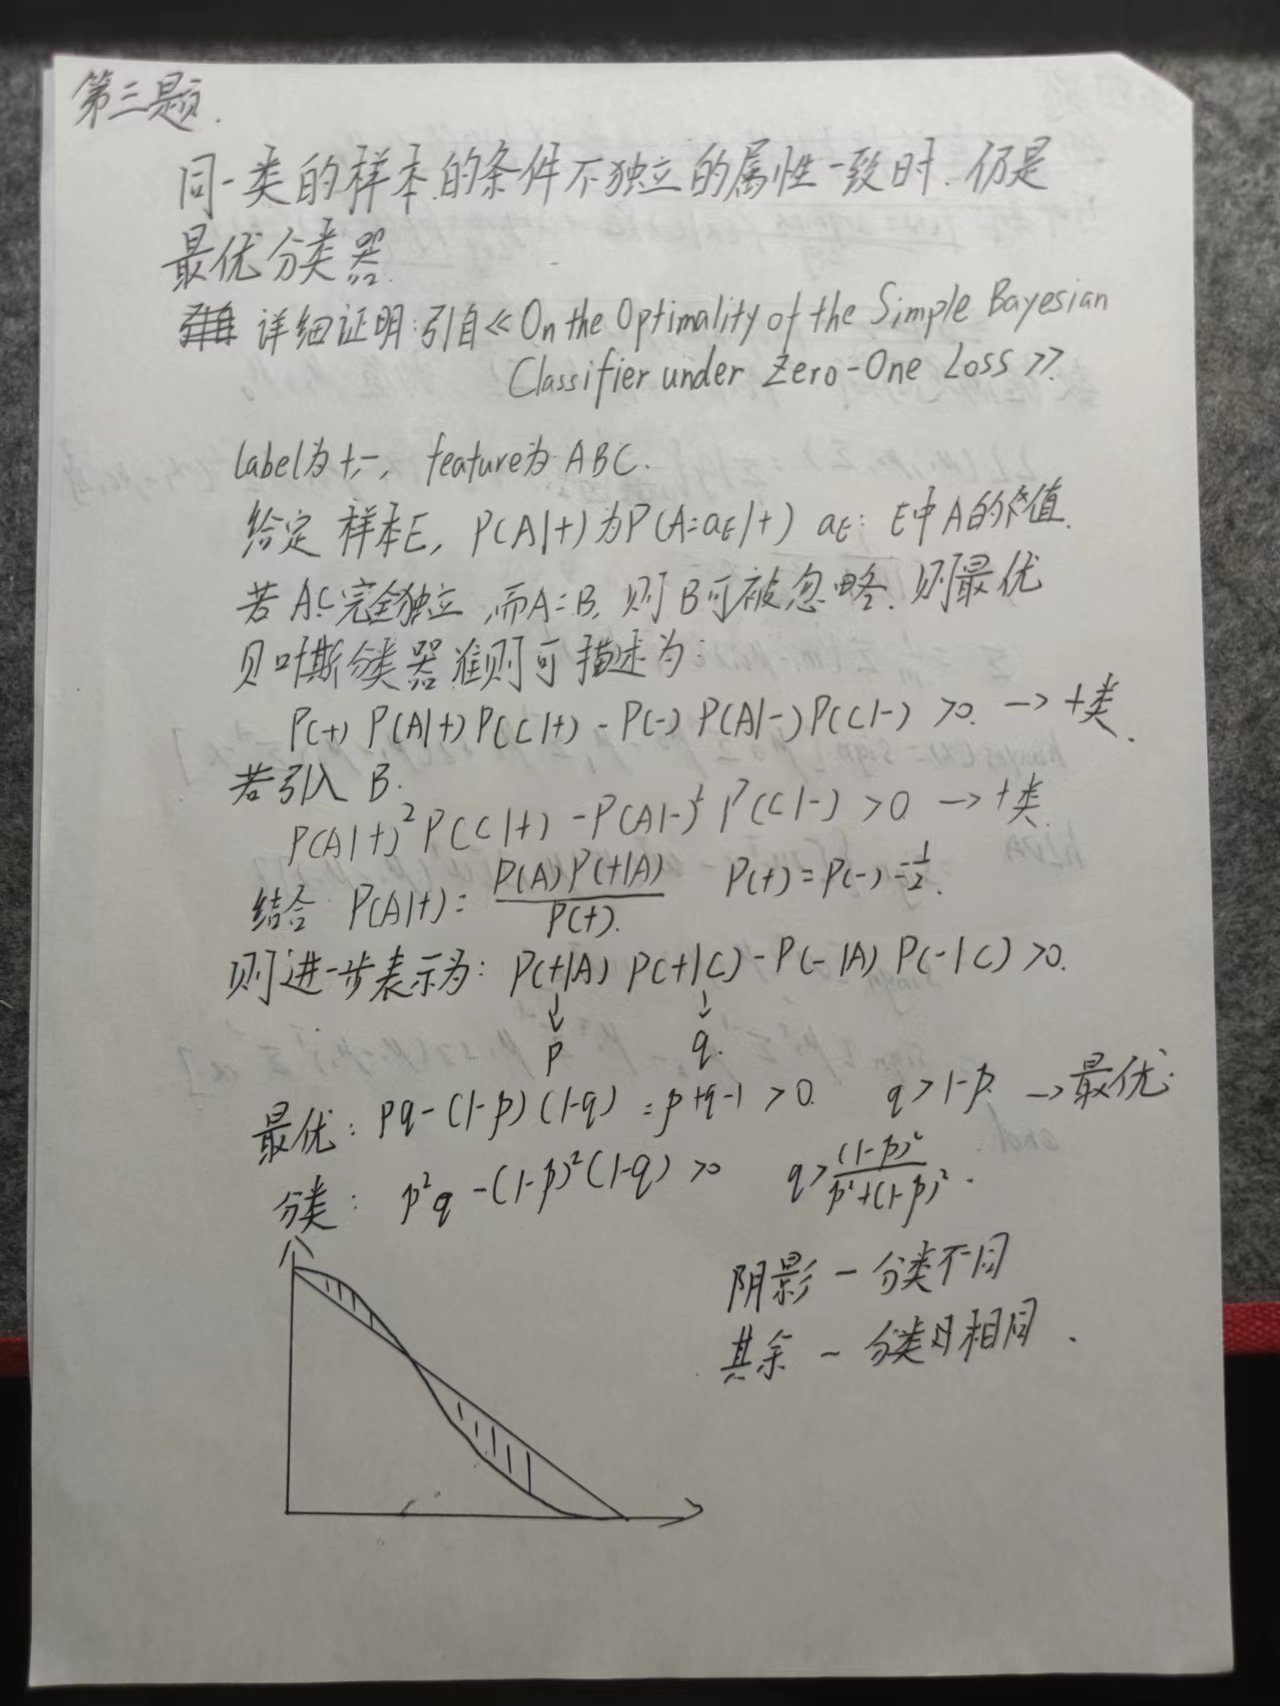 第三题.
同一类的样本的条件不独立的属性一致时.仍是
最优分类器.
详细证明:引自《On the Optimality of the Simple Bayesian
Classifier under Zero-One Loss》.
label为+,-, feature为ABC.
给定 样本E, P(A|+)为P(A=aE|+) aE: E中A的价值.
若AC完全独立,而A=B,则B可被忽略.则最优
贝叶斯分类器准则可描述为:
P(+)P(A|+)P(C|+)-P(-)P(A|-)P(C|-)>0. →+类.
若引入B.
P(A|+)²P(C|+)-P(A|-)²P(C|-)>0 →+类.
结合 P(A|+)=P(A)P(+|A)/P(+). P(+)=P(-)=1/2.
则进一步表示为: P(+|A)P(+|C)-P(-|A)P(-|C)>0.
↓ ↓
p q.
最优: pq-(1-p)(1-q)=p+q-1>0. q>1-p. →最优.
分类: p²q-(1-p)²(1-q)>0 q>(1-p)²/p²+(1-p)².
阴影-分类不同
其余-分类相同.